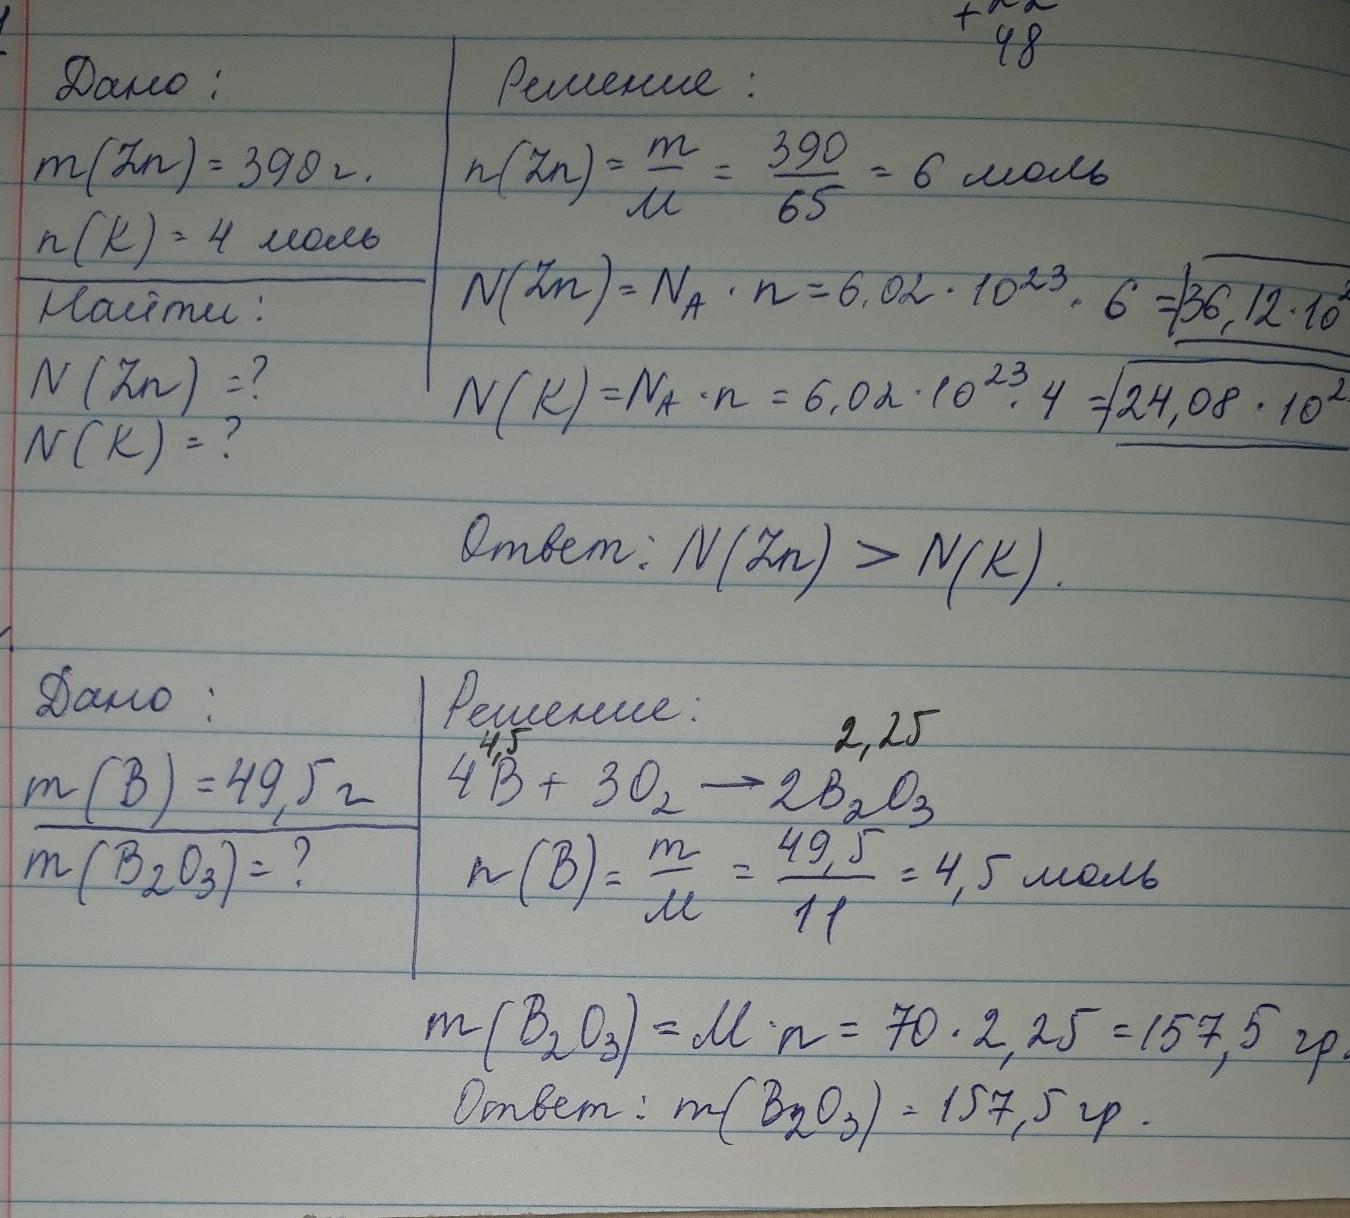 +22
48
Дано:
m(Zn) = 390 г.
n(K) = 4 моль
Найти:
N(Zn) = ?
N(K) = ?
Решение:
n(Zn) = m/M = 390/65 = 6 моль
N(Zn) = N_A · n = 6,02 · 10²³ · 6 = 36,12 · 10²
N(K) = N_A · n = 6,02 · 10²³ · 4 = 24,08 · 10²
Ответ: N(Zn) > N(K).
Дано:
m(B) = 49,5 г
m(B₂O₃) = ?
Решение:
4,5 2,25
4B + 3O₂ → 2B₂O₃
n(B) = m/M = 49,5/11 = 4,5 моль
m(B₂O₃) = M · n = 70 · 2,25 = 157,5 гр.
Ответ: m(B₂O₃) = 157,5 гр.